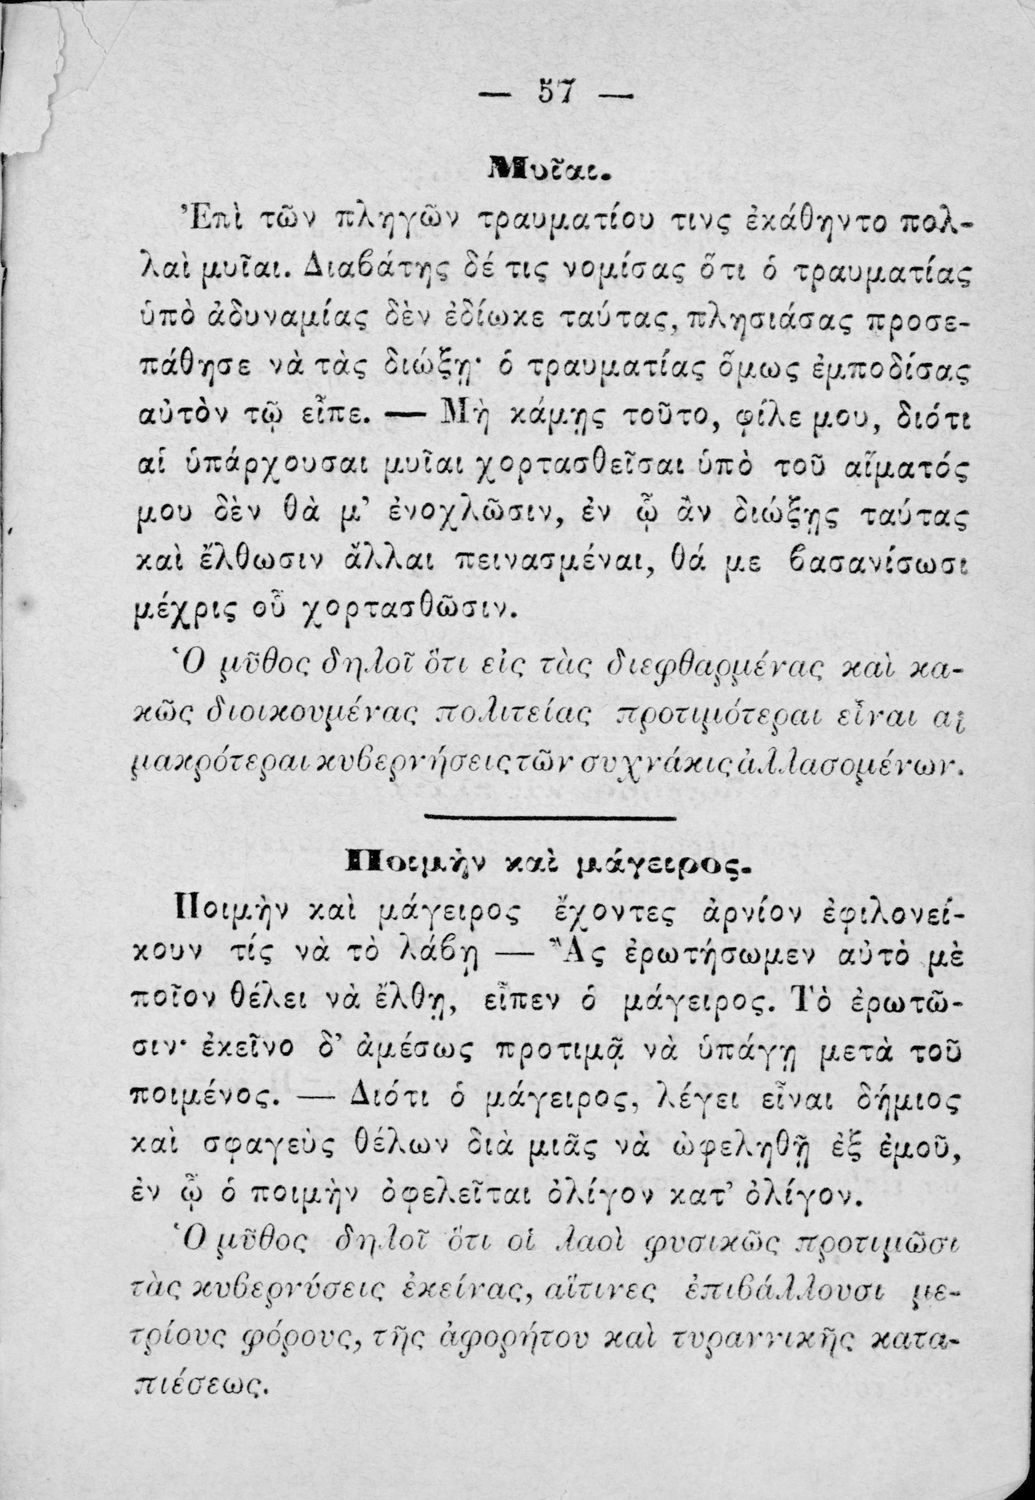 — 57 —
Μυῖαι.
Ἐπὶ τῶν πληγῶν τραυματίου τινς ἐκάθηντο πολ-
λαὶ μυῖαι. Διαβάτης δέ τις νομίσας ὅτι ὁ τραυματίας
ὑπὸ ἀδυναμίας δὲν ἐδίωκε ταύτας, πλησιάσας προσε-
πάθησε νὰ τὰς διώξῃ· ὁ τραυματίας ὅμως ἐμποδίσας
αὐτὸν τῷ εἶπε. — Μὴ κάμῃς τοῦτο, φίλε μου, διότι
αἱ ὑπάρχουσαι μυῖαι χορτασθεῖσαι ὑπὸ τοῦ αἵματός
μου δὲν θὰ μ’ ἐνοχλῶσιν, ἐν ᾧ ἂν διώξῃς ταύτας
καὶ ἔλθωσιν ἄλλαι πεινασμέναι, θά με βασανίσωσι
μέχρις οὗ χορτασθῶσιν.
Ὁ μῦθος δηλοῖ ὅτι εἰς τὰς διεφθαρμένας καὶ κα-
κῶς διοικουμένας πολιτείας προτιμότεραι εἶναι αἱ
μακρότεραι κυβερνήσεις τῶν συχνάκις ἀλλασομένων.
Ποιμὴν καὶ μάγειρος.
Ποιμὴν καὶ μάγειρος ἔχοντες ἀρνίον ἐφιλονεί-
κουν τίς νὰ τὸ λάβῃ — Ἂς ἐρωτήσωμεν αὐτὸ μὲ
ποῖον θέλει νὰ ἔλθῃ, εἶπεν ὁ μάγειρος. Τὸ ἐρωτῶ-
σιν· ἐκεῖνο δ’ ἀμέσως προτιμᾷ νὰ ὑπάγῃ μετὰ τοῦ
ποιμένος. — Διότι ὁ μάγειρος, λέγει εἶναι δήμιος
καὶ σφαγεὺς θέλων διὰ μιᾶς νὰ ὠφεληθῇ ἐξ ἐμοῦ,
ἐν ᾧ ὁ ποιμὴν ὀφελεῖται ὀλίγον κατ’ ὀλίγον.
Ὁ μῦθος δηλοῖ ὅτι οἱ λαοὶ φυσικῶς προτιμῶσι
τὰς κυβερνύσεις ἐκείνας, αἵτινες ἐπιβάλλουσι με-
τρίους φόρους, τῆς ἀφορήτου καὶ τυραννικῆς κατα-
πιέσεως.